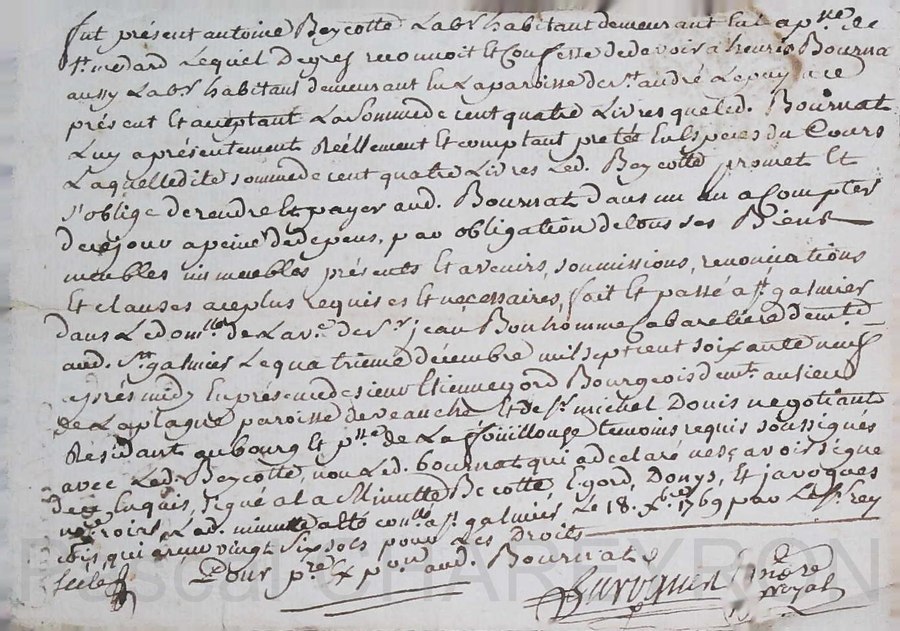 fut présent antoine Beycotte Labr habitant demeurant en la apsse de
St. medard Lequel de gres reconnoit et Confesse de devoir a henris Bournat
aussy Labr habitant demeurant en La paroisse de st. andré Le puy ice
présent et acceptant La Somme de cent quatre Livres que led. Bournat
Luy a présentement Réellement et comptant pretée en Espèces du Cours
Laquelle dite somme de cent quatre Livres Led. Beycotte promet et
s'oblige de rendre et payer aud. Bournat dans un an a Compter
de ce jour a peine de depens, par obligation de tous ses Biens
meubles immeubles présents et avenirs, soumissions, renonciations
et clauses a ce plus requises et nécessaires, fait et passé a st. galmier
dans Le domlle de La ve. de Sr. jean Bonhomme Cabaretière demte
aud. St. galmier Le quatrieme décembre mil sept cent soixante neuf
après midy En présence de sieur Etienne gord Bourgeois demt. au lieu
de La plagne paroisse de veauche et de Sr. michel Donis negotiant
Résidant au bourg et psse de La fouillouse temoins requis soussignés
avec Led. Beycotte, non Led. bournat qui a declaré ne sçavoir signer
de ce Enquis, signé a la Minutte Becotte Egord, Donys, et javogues
nore roial, Lad. minutte a été conlle a st. galmier Le 18. Xbre 1769 par Le Sr. rey
cois qui a reçu vingt six sols pour Les Droits
scellé Pour pre. Expon. aud. Bournat
Javogues nore royal
Pascal CHAREYRON